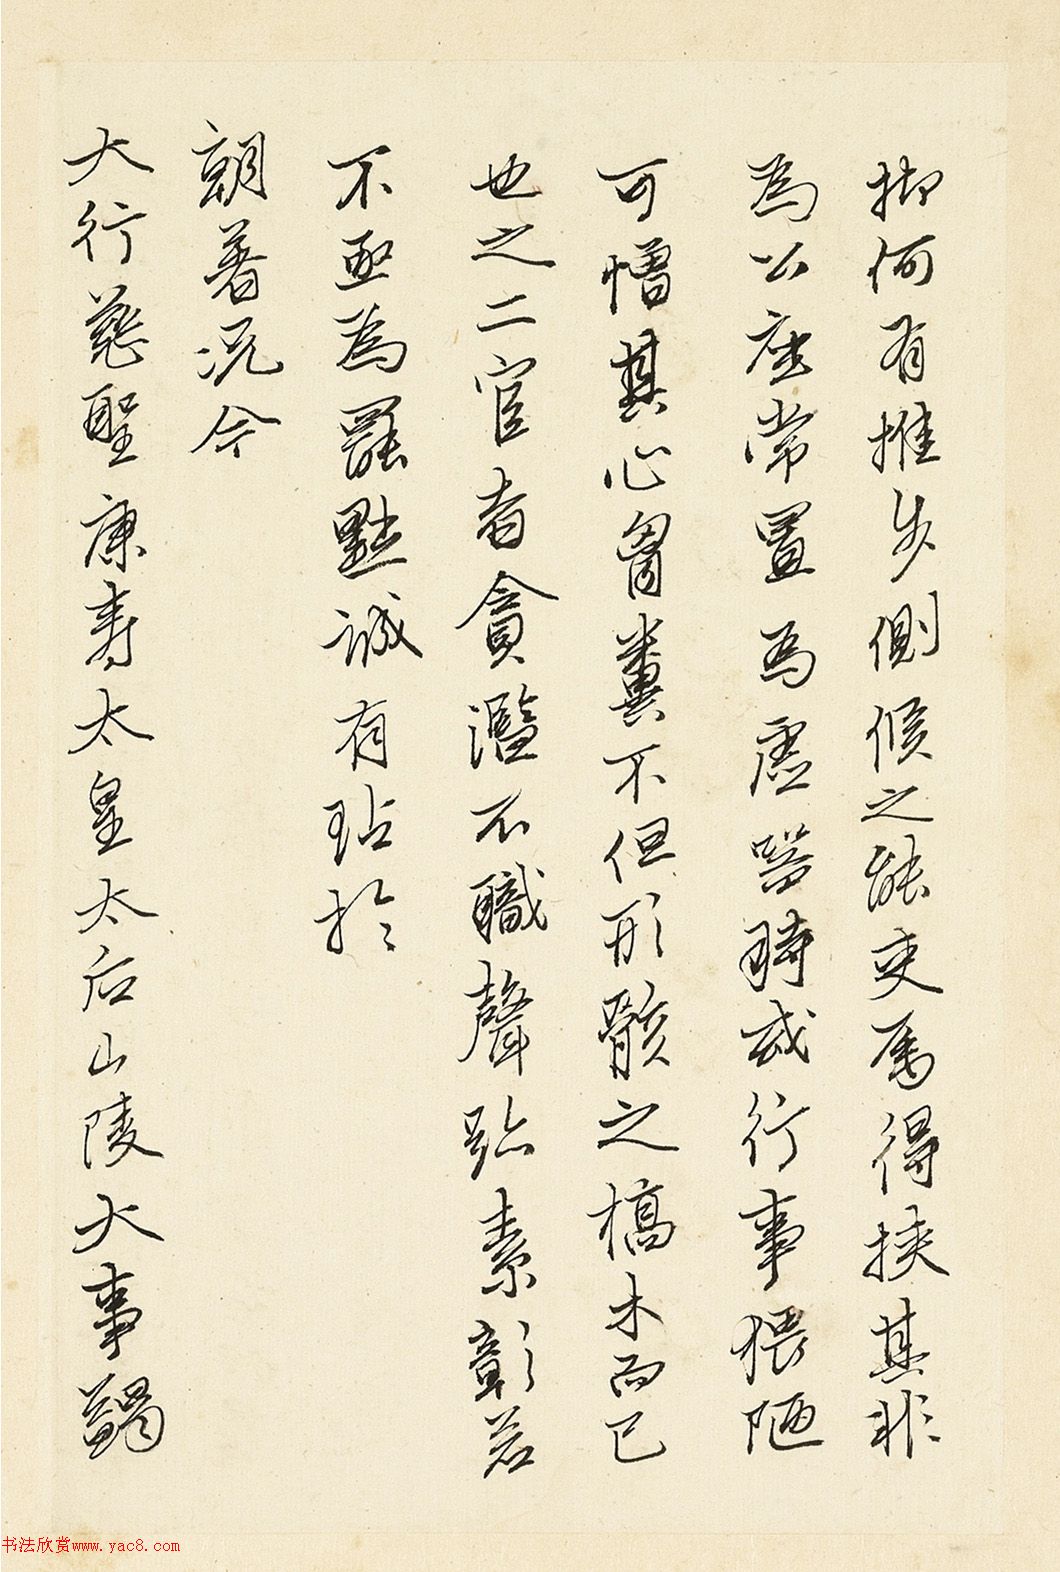 抑何有推步測候之能吏焉得挾其非
為公座常置為虛器時或行事猥陋
可憎其心胷糞不但形骸之槁木而已
也之二官者貪濫不職聲跡素彰若
不亟為罷黜誠有玷於
朝著況今
大行慈聖康壽太皇太后山陵大事蠲
书法欣赏www.yac8.com